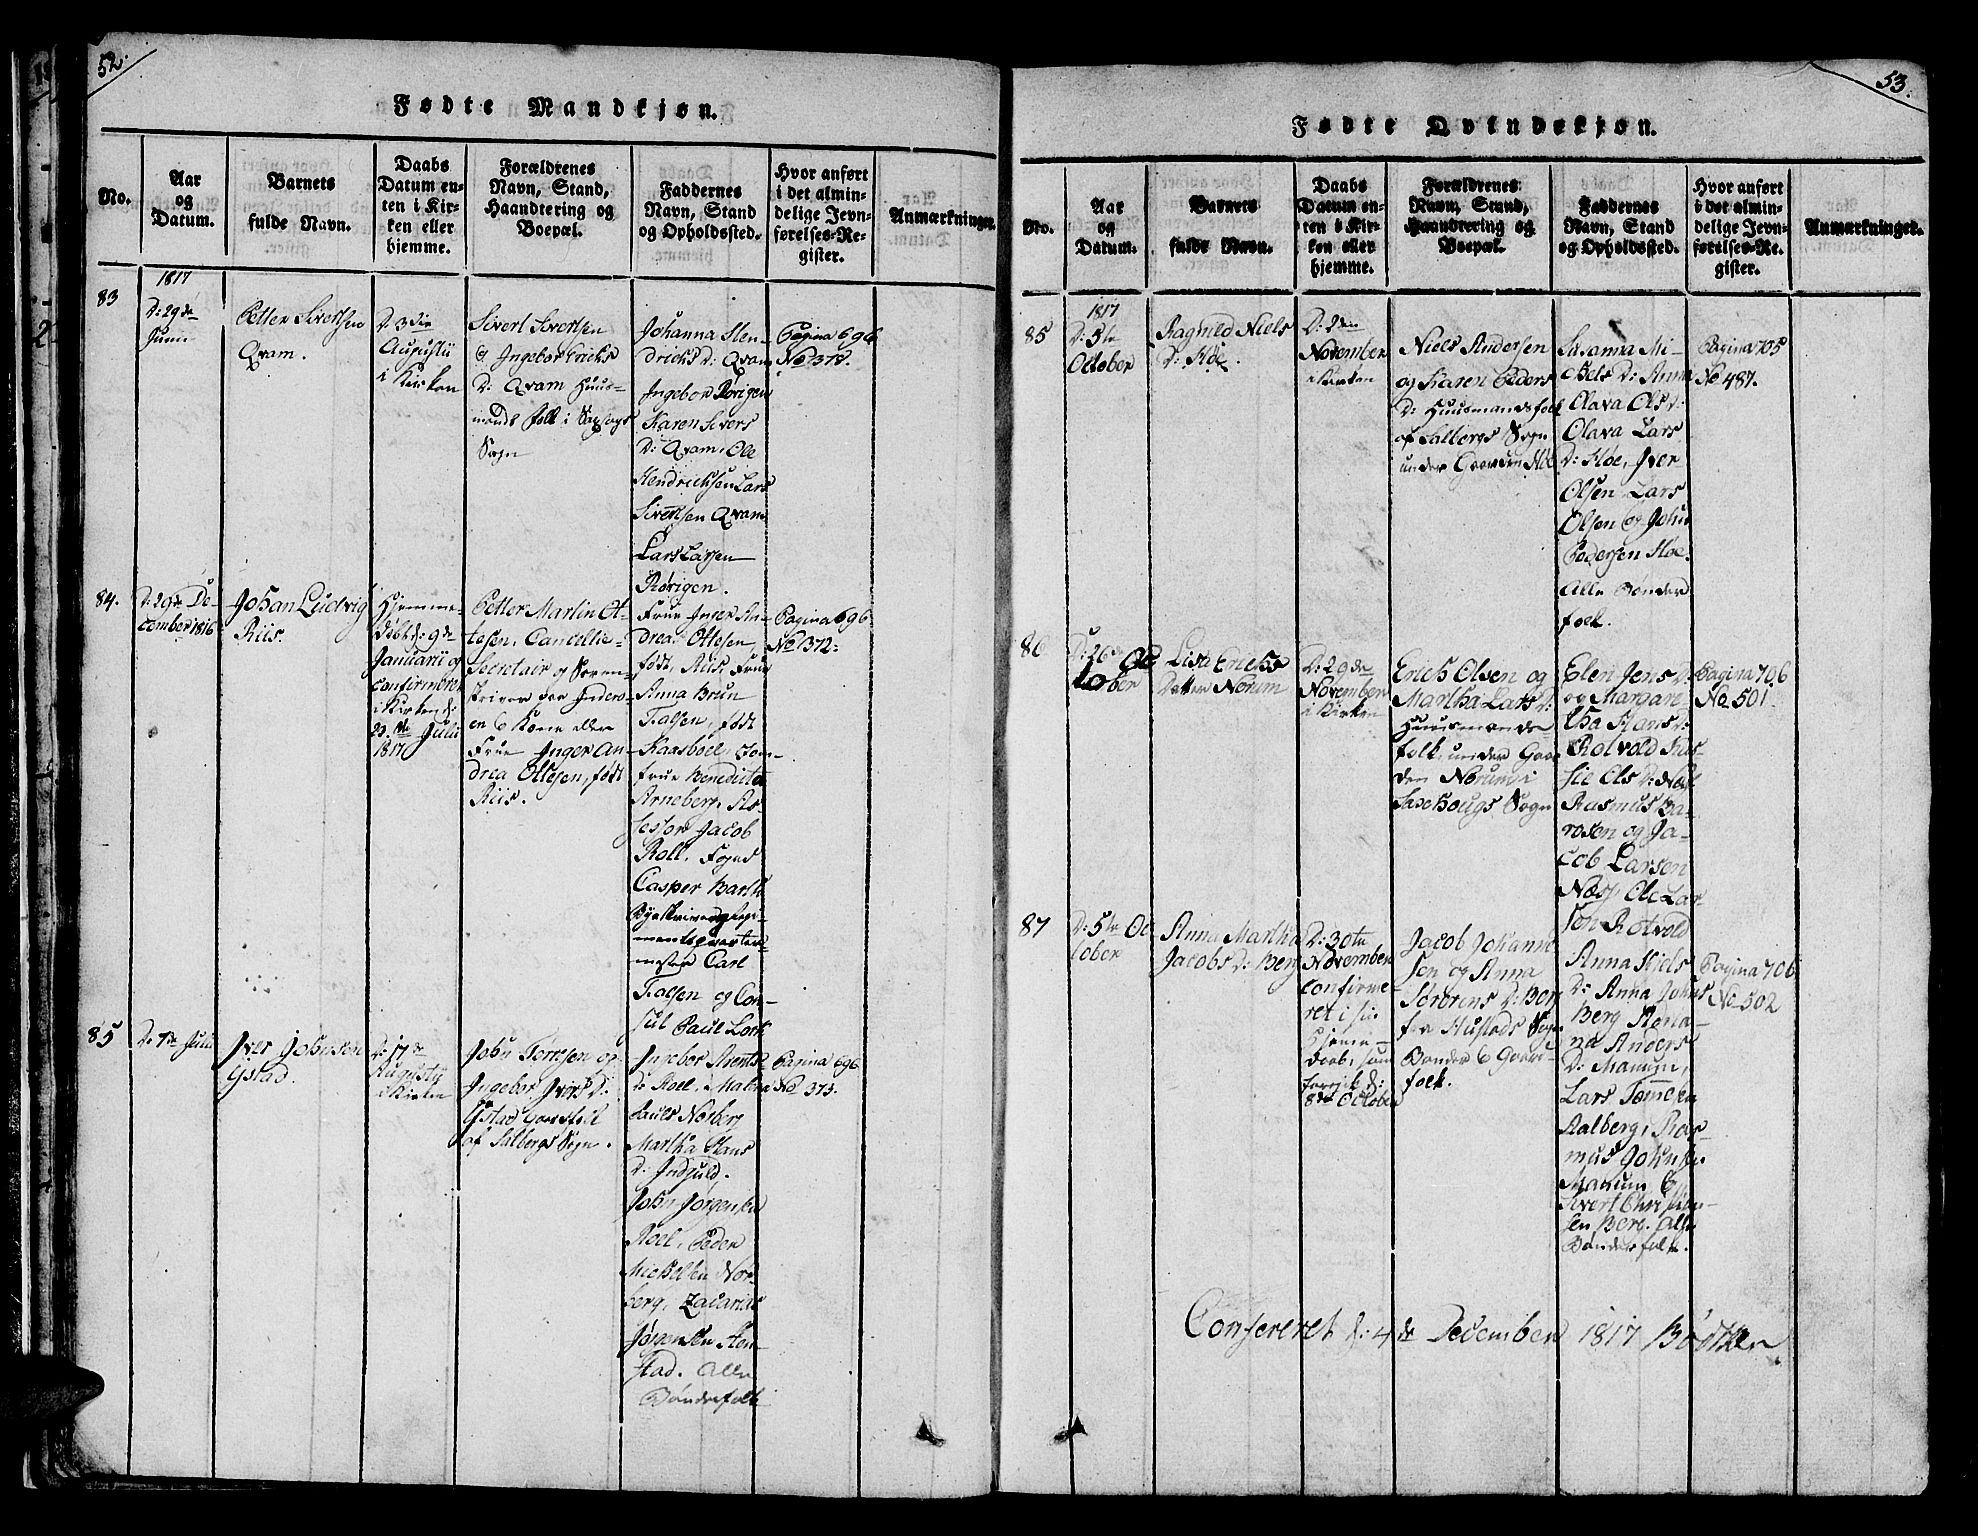 52.
Fødte Mandkjøn.
No.
Aar
og
Datum.
Barnets
fulde Navn.
Daabs
Datum en-
ten i Kir-
ken eller
hjemme.
Forældrenes
Navn, Stand,
Haandtering og
Boepæl.
Faddernes
Navn, Stand
og Opholdssted.
Hvor anført
i det almin-
delige Jevn-
førelses-Re-
gister.
Anmærkninger.
83
1817
D: 29de
Junii
Petter Sivertsen
Qvam.
D. 3die
Augustii
i Kirken
Sivert Sivertsen
og Ingebor Ericks
D: Qvam Huus-
mands folk i
Sogn
Johanna Hen-
dricks D: Qvam
Ingebor Rørigen
Karen Sivers
D: Qvam, Ole
Hendrichsen Lars
Sivertsen Qvam
Lars Larsen
Rørigen.
Pagina 696
No 371.
84.
D: 29de De-
cember 1816
Johan Ludvig
Riis.
Hjemme-
døbt d: 9de
Januarii og
confirmeret
i Kirken d:
Julii
1817
Petter Martin Ot-
tesen, Cancellie-
Secretair og Soren-
skriver over Indero-
en & Kone
Frue Inger An-
drea Ottesen, født
Riis.
Frue Inger An-
drea Ottesen,
født Riis, Frue
Anna Brun
Falsen, født
Kaasbøel, Jom-
frue Benedicte
Arneberg, As-
sessor Jacob
Roll, Foged
Casper Barth
Byeskriver og Regi-
mentsqvarter-
mester Carl
Falsen og Con-
sul Paul Lork
Pagina 696
No 372.
85
D. 7de Julii
Iver Johnsen
Ystad.
D: 17de
Augustij
i Kirken
John Torresen og
Ingebor Ivers D:
Ystad Gaardfolk
af Salbergs Sogn.
Ingebor Arents
D: Roel, Malena
Pauls Norberg
Martha Hans
D: Indhuld.
John Jørgensen
Roel, Peder
Mickelsen Nor-
berg, Zacarias
Jørgensen Hen-
stad. Alle
Bønderfolk
Pagina 696
No 373.
53.
Fødte Qvindekjøn.
No.
Aar
og
Datum.
Barnets
fulde Navn.
Daabs
Datum en-
ten i Kir-
ken eller
hjemme.
Forældrenes
Navn, Stand,
Haandtering og
Boepæl.
Faddernes
Navn, Stand
og Opholdssted.
Hvor anført
i det almin-
delige Jevn-
førelses-Re-
gister.
Anmærkninger.
85
1817
D: 5te
October
Ragnild Niels
D: Høe.
D: 2den
November
i Kirken
Niels Andersen
og Karen Peders
D: Huusmandsfolk
af Salbergs Sogn
under Gaarden Høe
Susanna Mi-
chels D: Anna
Olava Ols D:
Olava Lars
D: Høe, Iver
Olsen Lars
Olsen og John
Pedersen Høe.
Alle Bønder
folk.
Pagina 705
No 487.
86
D: 26de Oc
tober
Lisa Erichs
Datter Norum
D: 29de
November
i Kirken
Erich Olsen og
Martha Lars D:
Huusmands-
folk, under Gaar
den Norum i
Saxehougs Sogn
Elen Jens D:
og Margare-
tha Hans D:
Rotvold
sie Ols D: Næs
Rasmus Ba-
rosen og Ja-
cob Larsen
Næs, Ole Lar
sen Rotvold
Pagina 706
No 501.
87
D: 5te Oc
tober
Anna Martha
Jacobs D: Berg
D: 30te
November
confirme-
ret i sin
Hjemme-
daab, som
foregik d:
8de October
Jacob Johann
sen og Anna
Sørens D: Berg
fra Hustads Sogn
Bønder & Gaard-
folk.
Anna Niels
D: Anna Johns
Berg Anna-
na Anders
D: Manum,
Lars Tømmeraa
Aalberg, Ras-
mus Johnsen
Manum &
Sivert Christian-
sen Berg. Alle
Bønderfolk.
Pagina 706
No 502
Confereret d: 4de December 1817 Bödtker